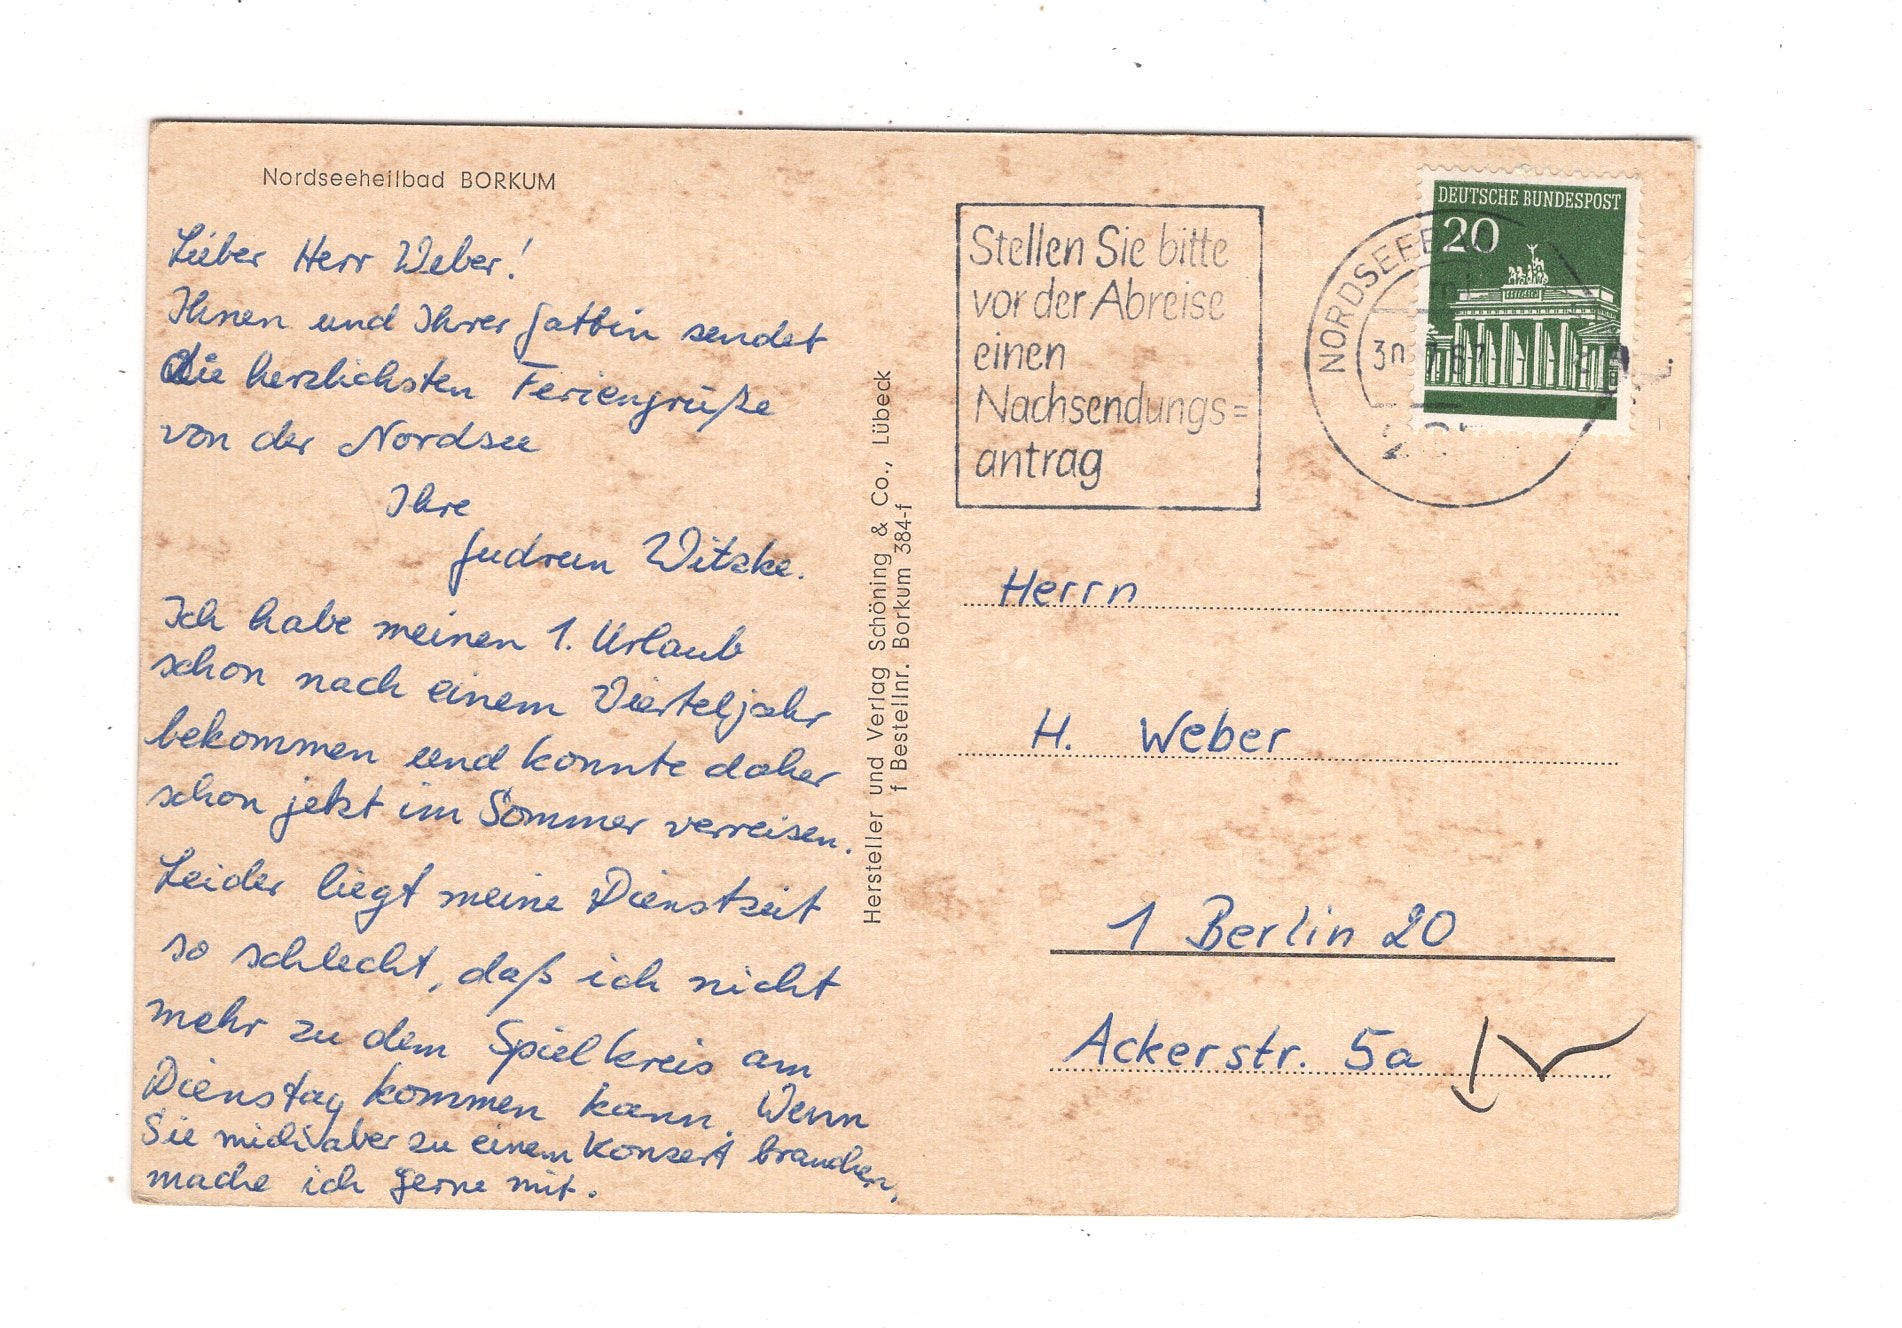 Nordseeheilbad BORKUM
Lieber Herr Weber!
Ihnen und Ihrer Gattin sendet
die herzlichsten Feriengrüße
von der Nordsee
Ihre
Gudrun Witzke.
Ich habe meinen 1. Urlaub
schon nach einem Vierteljahr
bekommen und konnte daher
schon jetzt im Sommer verreisen.
Leider liegt meine Dienstzeit
so schlecht, daß ich nicht
mehr zu dem Spielkreis am
Dienstag kommen kann. Wenn
Sie mich aber zu einem Konzert brauchen,
mache ich gerne mit.
Hersteller und Verlag Schöning & Co., Lübeck
f Bestellnr. Borkum 384-f
Stellen Sie bitte
vor der Abreise
einen
Nachsendungs=
antrag
DEUTSCHE BUNDESPOST
20
NORDSEEB
30.7.67
Herrn
H. Weber
1 Berlin 20
Ackerstr. 5a